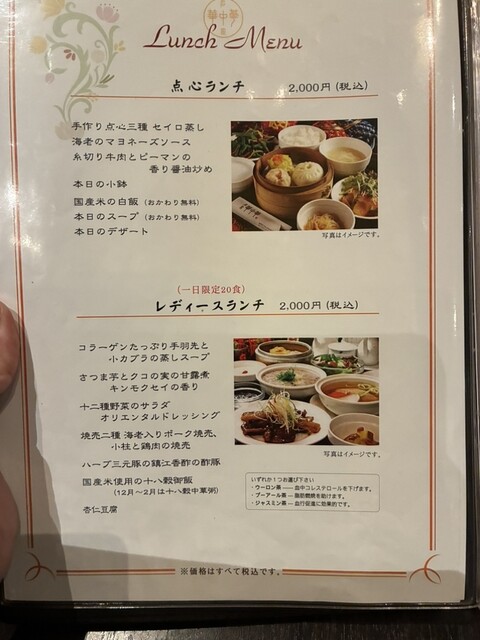 華中華
Lunch Menu
点心ランチ 2,000円(税込)
手作り点心三種 セイロ蒸し
海老のマヨネーズソース
糸切り牛肉とピーマンの
香り醤油炒め
本日の小鉢
国産米の白飯(おかわり無料)
本日のスープ(おかわり無料)
本日のデザート
写真はイメージです。
(一日限定20食)
レディースランチ 2,000円(税込)
コラーゲンたっぷり手羽先と
小カブラの蒸しスープ
さつま芋とクコの実の甘露煮
キンモクセイの香り
十二種野菜のサラダ
オリエンタルドレッシング
焼売二種 海老入りポーク焼売、
小柱と鶏肉の焼売
ハーブ三元豚の鎮江香酢の酢豚
国産米使用の十八穀御飯
(12月〜2月は十八穀中華粥)
杏仁豆腐
写真はイメージです。
いずれか1つお選び下さい
・ウーロン茶 ── 血中コレステロールを下げます。
・プーアール茶 ─ 脂肪燃焼を助けます。
・ジャスミン茶 ─ 血行促進に効果的です。
※価格はすべて税込です。